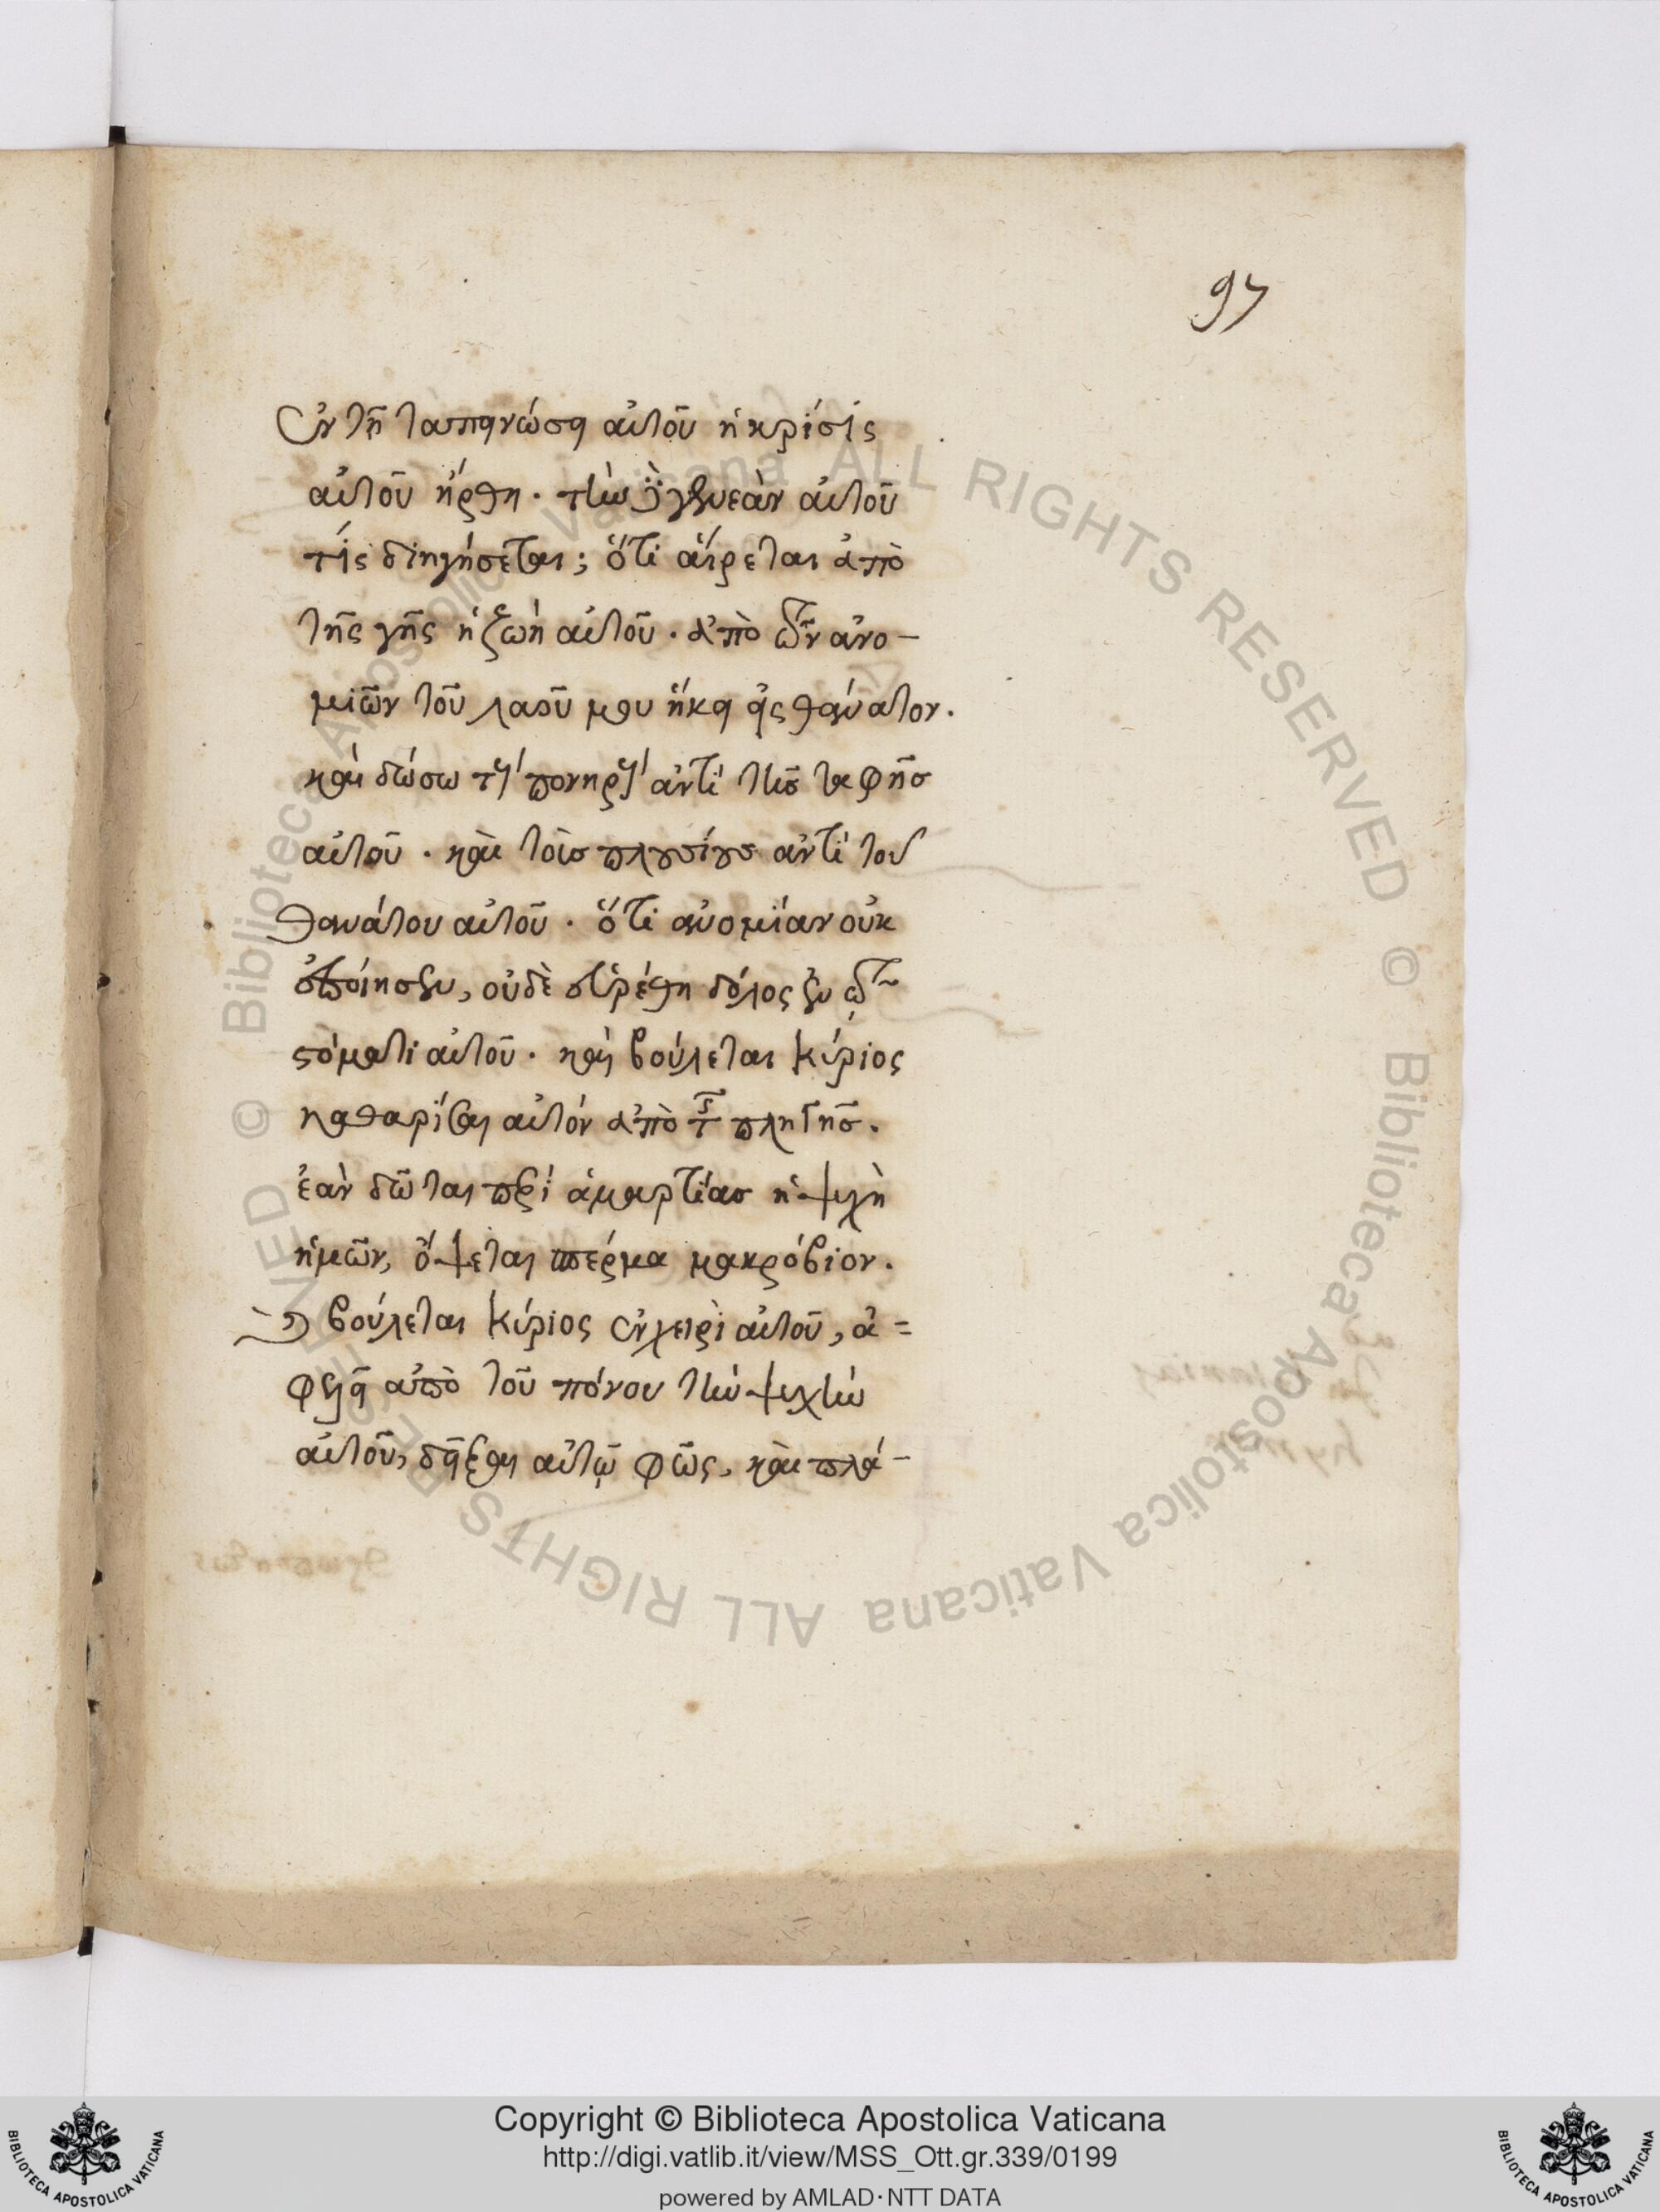 97
ἐν τῇ ταπεινώσει αὐτοῦ ἡ κρίσις
αὐτοῦ ἤρθη · τὴν δὲ γενεὰν αὐτοῦ
τίς διηγήσεται; ὅτι αἴρεται ἀπὸ
τῆς γῆς ἡ ζωὴ αὐτοῦ · ἀπὸ τῶν ἀνο-
μιῶν τοῦ λαοῦ μου ἥκει εἰς θάνατον.
καὶ δώσω τοὺς πονηροὺς ἀντὶ τῆς ταφῆς
αὐτοῦ · καὶ τοὺς πλουσίους ἀντὶ τοῦ
θανάτου αὐτοῦ · ὅτι ἀνομίαν οὐκ
ἐποίησεν, οὐδὲ εὑρέθη δόλος ἐν τῷ
στόματι αὐτοῦ · καὶ βούλεται κύριος
καθαρίσαι αὐτόν ἀπὸ τῆς πληγῆς.
ἐὰν δῶται περὶ ἁμαρτίας ἡ ψυχὴ
ἡμῶν, ὄψεται σπέρμα μακρόβιον.
καὶ βούλεται κύριος ἐν χειρὶ αὐτοῦ, ἀ=
φελεῖ ἀπὸ τοῦ πόνου τὴν ψυχὴν
αὐτοῦ, δεῖξαι αὐτῷ φῶς, καὶ πλά-
© Biblioteca Apostolica Vaticana ALL RIGHTS RESERVED © Biblioteca Apostolica Vaticana ALL RIGHTS RESERVED
Copyright © Biblioteca Apostolica Vaticana
http://digi.vatlib.it/view/MSS_Ott.gr.339/0199
powered by AMLAD·NTT DATA
BIBLIOTECA APOSTOLICA VATICANA
BIBLIOTECA APOSTOLICA VATICANA